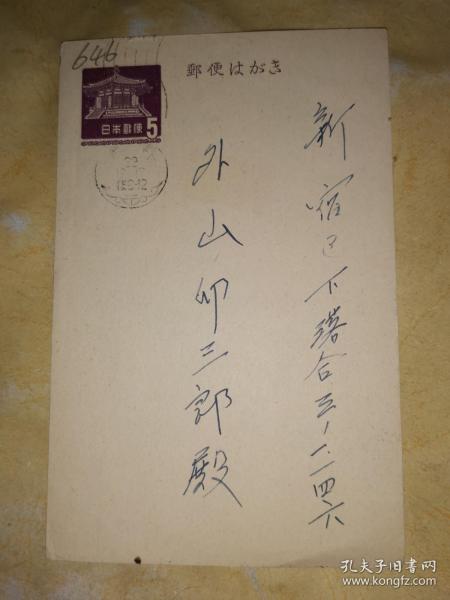 646
郵便はがき
日本郵便
5
新宿区下落合三ノ一二四六
外山卯三郎殿
孔夫子旧书网
www.kongfz.com